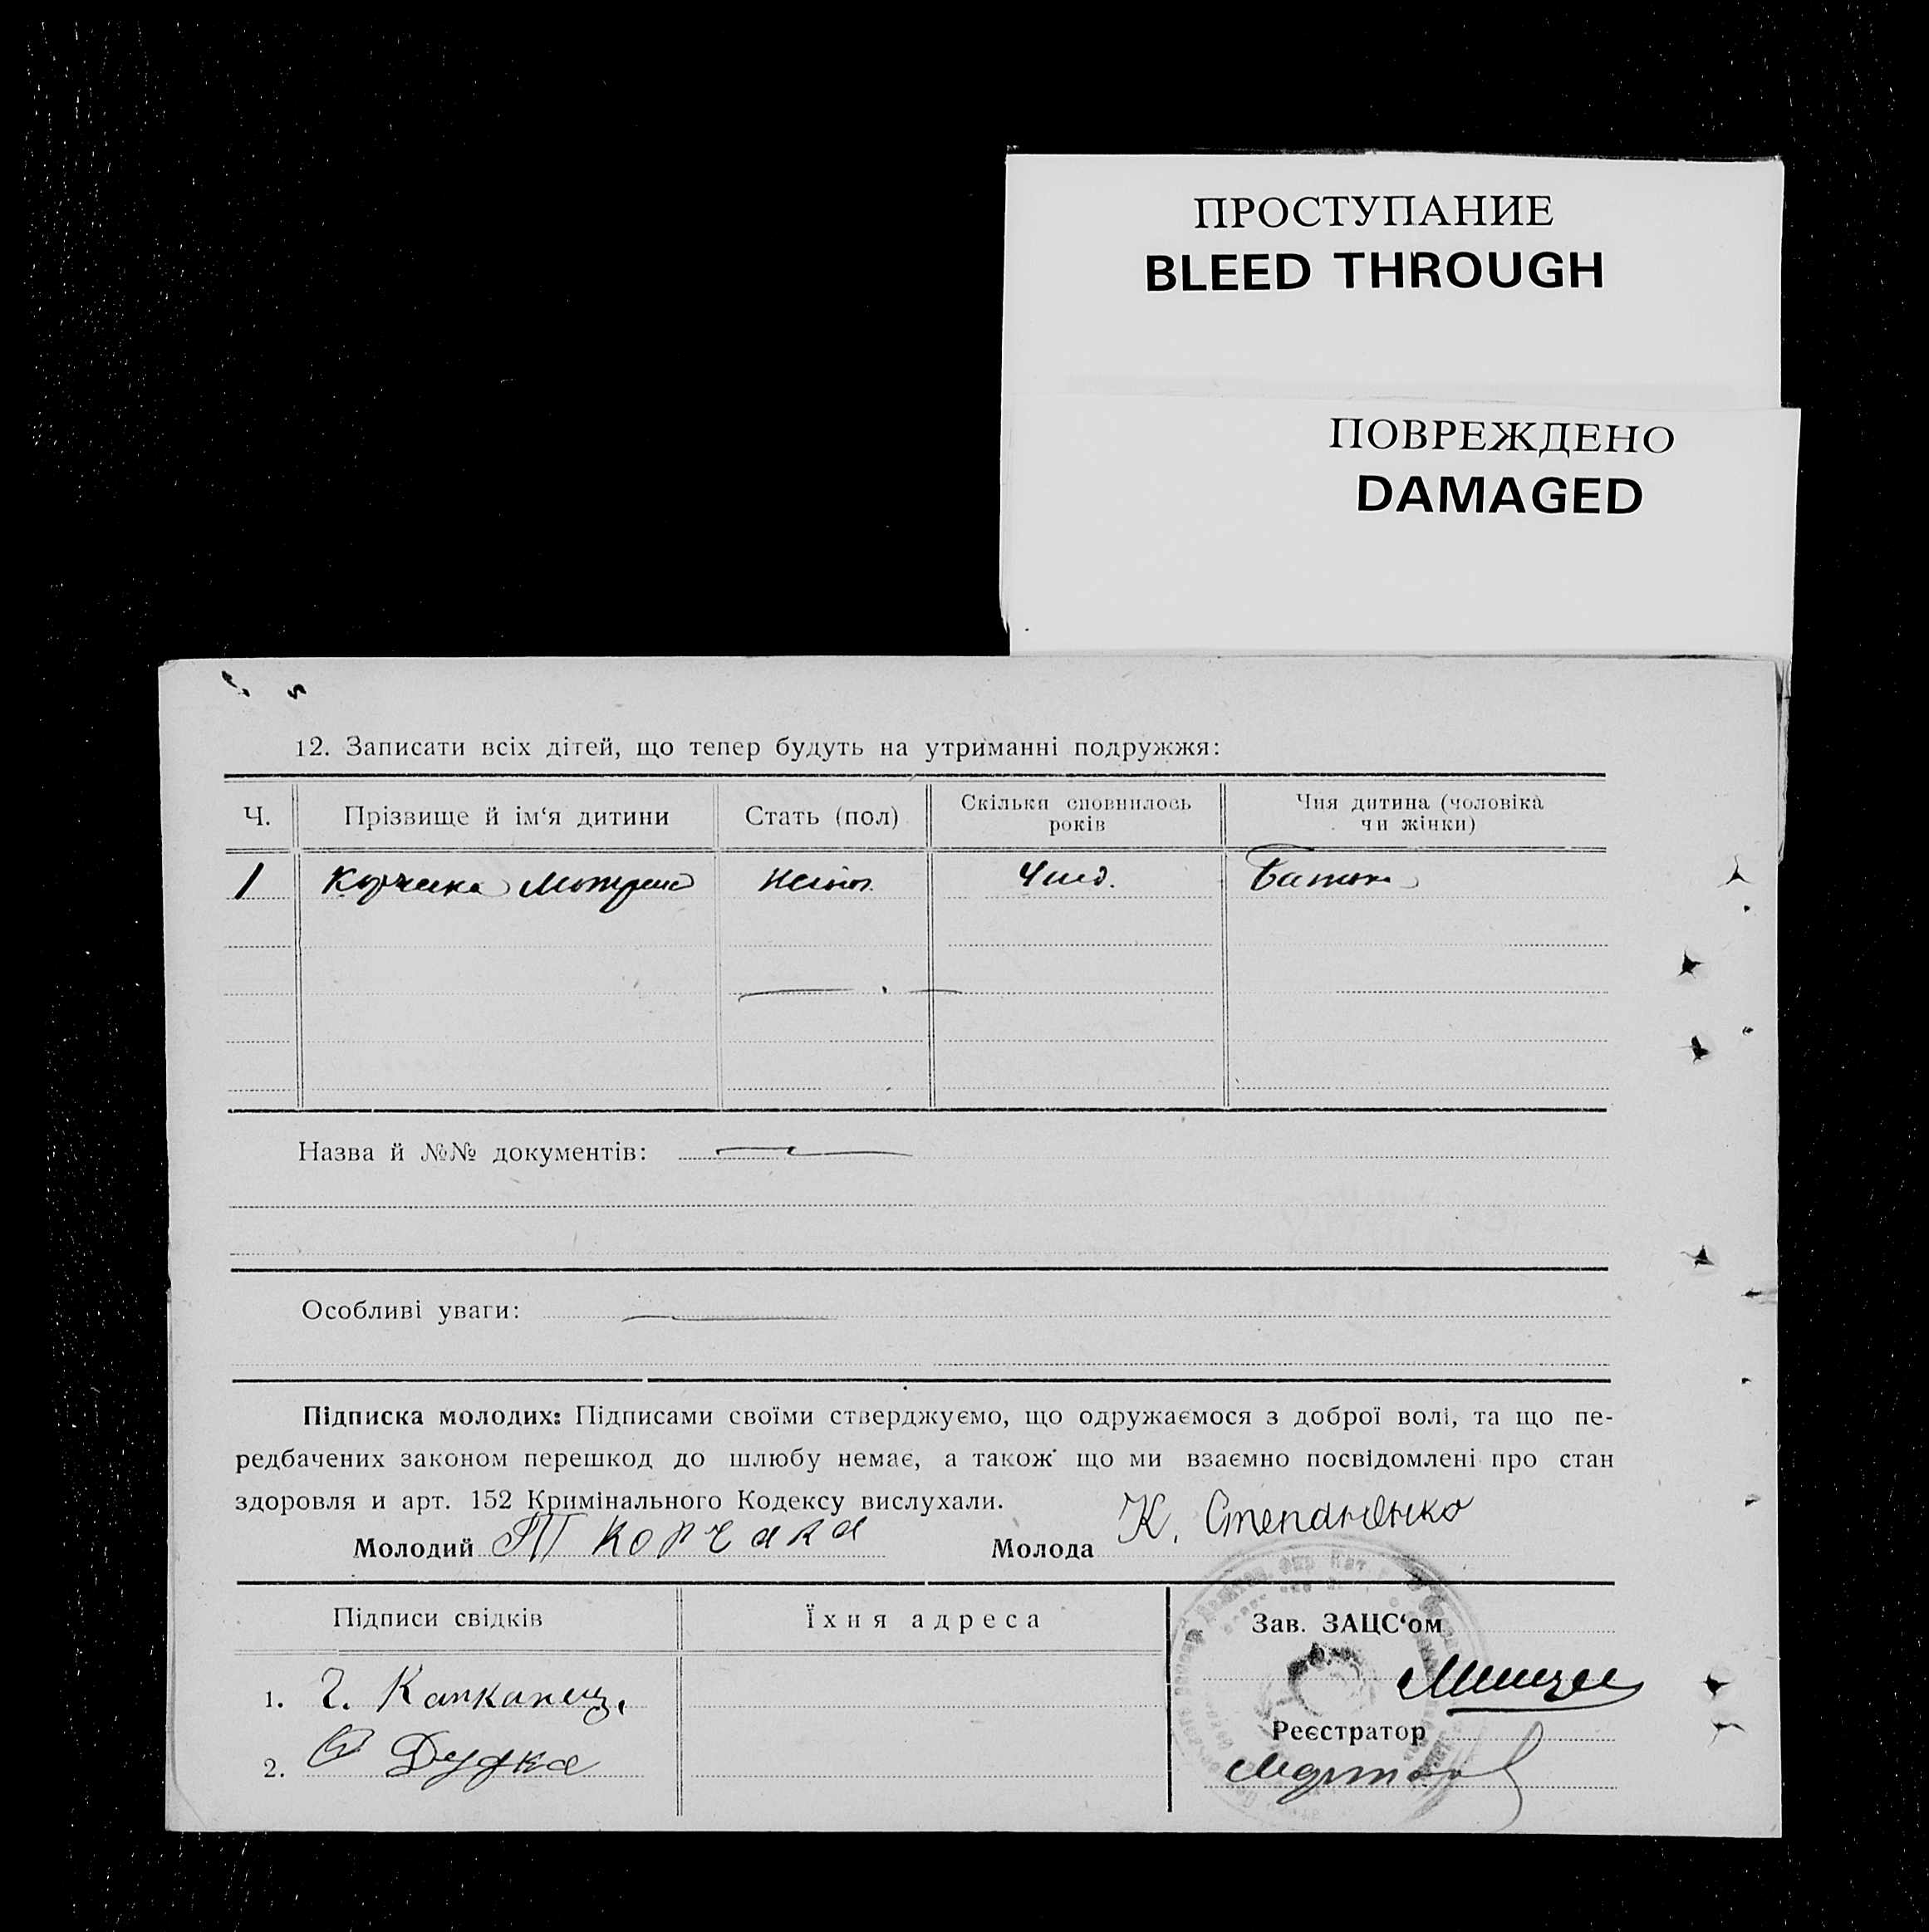 ПРОСТУПАНИЕ
BLEED THROUGH
ПОВРЕЖДЕНО
DAMAGED
12. Записати всіх дітей, що тепер будуть на утриманні подружжя:
Ч. Прізвище й ім‘я дитини Стать (пол) Скільки сповнилось років Чия дитина (чоловіка чи жінки)
1 Корчака
Назва й №№ документів:
Особливі уваги:
Підписка молодих: Підписами своїми стверджуємо, що одружаємося з доброї волі, та що пе-
редбачених законом перешкод до шлюбу немає, а також що ми взаємно посвідомлені про стан
здоровля и арт. 152 Кримінального Кодексу вислухали.
Молодий П Корчака Молода К.
Підписи свідків Їхня адреса Зав. ЗАЦС‘ом
1.
Реєстратор
2. Дудка